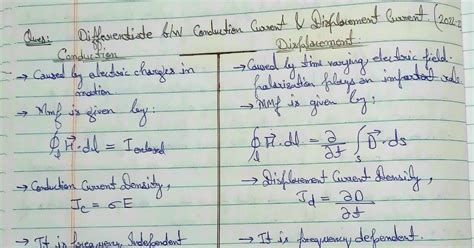 Ques: Differentiate b/w Conduction Current & Displacement Current. (2022-
Conduction
→ Caused by electric charges in
motion
→ Mmf is given by:
∮ₗ H⃗ . dl = Ienclosed
→ Conduction Current Density,
Jc = σE
→ It is frequency Independent
Displacement
→ Caused by time varying electric field.
Polarisation plays an important role
→ MMF is given by:
∮ₗ H⃗ . dl = ∂/∂t ∫ₛ D⃗ . ds
→ Displacement Current Density,
Jd = ∂D/∂t
→ It is frequency dependent.